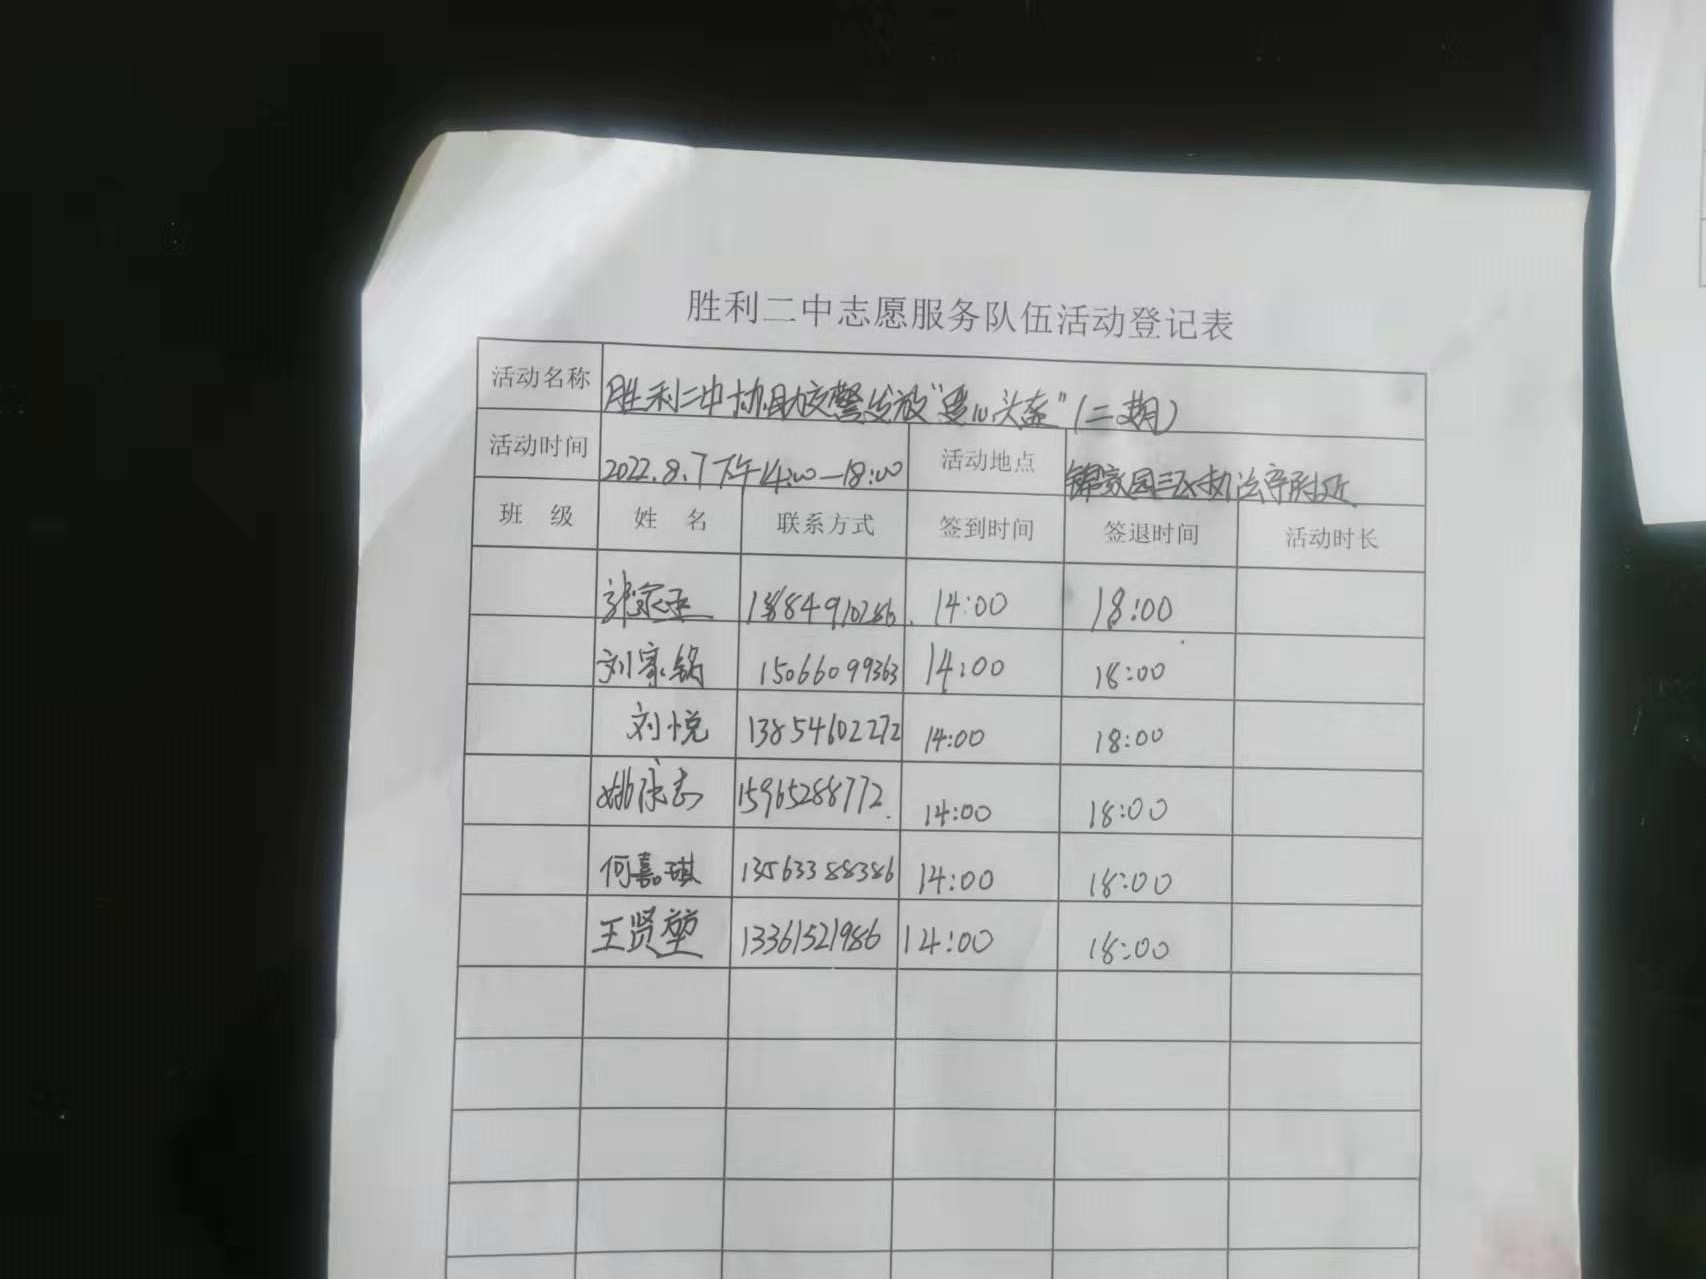 胜利二中志愿服务队伍活动登记表
活动名称 胜利二中协助交警发放"爱心头盔"(二期)
活动时间 2022.8.7下午14:00—18:00 活动地点 锦苑园三区执法亭附近
班 级 姓 名 联系方式 签到时间 签退时间 活动时长
1884910286 14:00 18:00
刘家铭 15066099363 14:00 18:00
刘悦 13854602272 14:00 18:00
姚 志 15965288772 14:00 18:00
何嘉琪 13563388386 14:00 18:00
王贤堃 13361521986 14:00 18:00